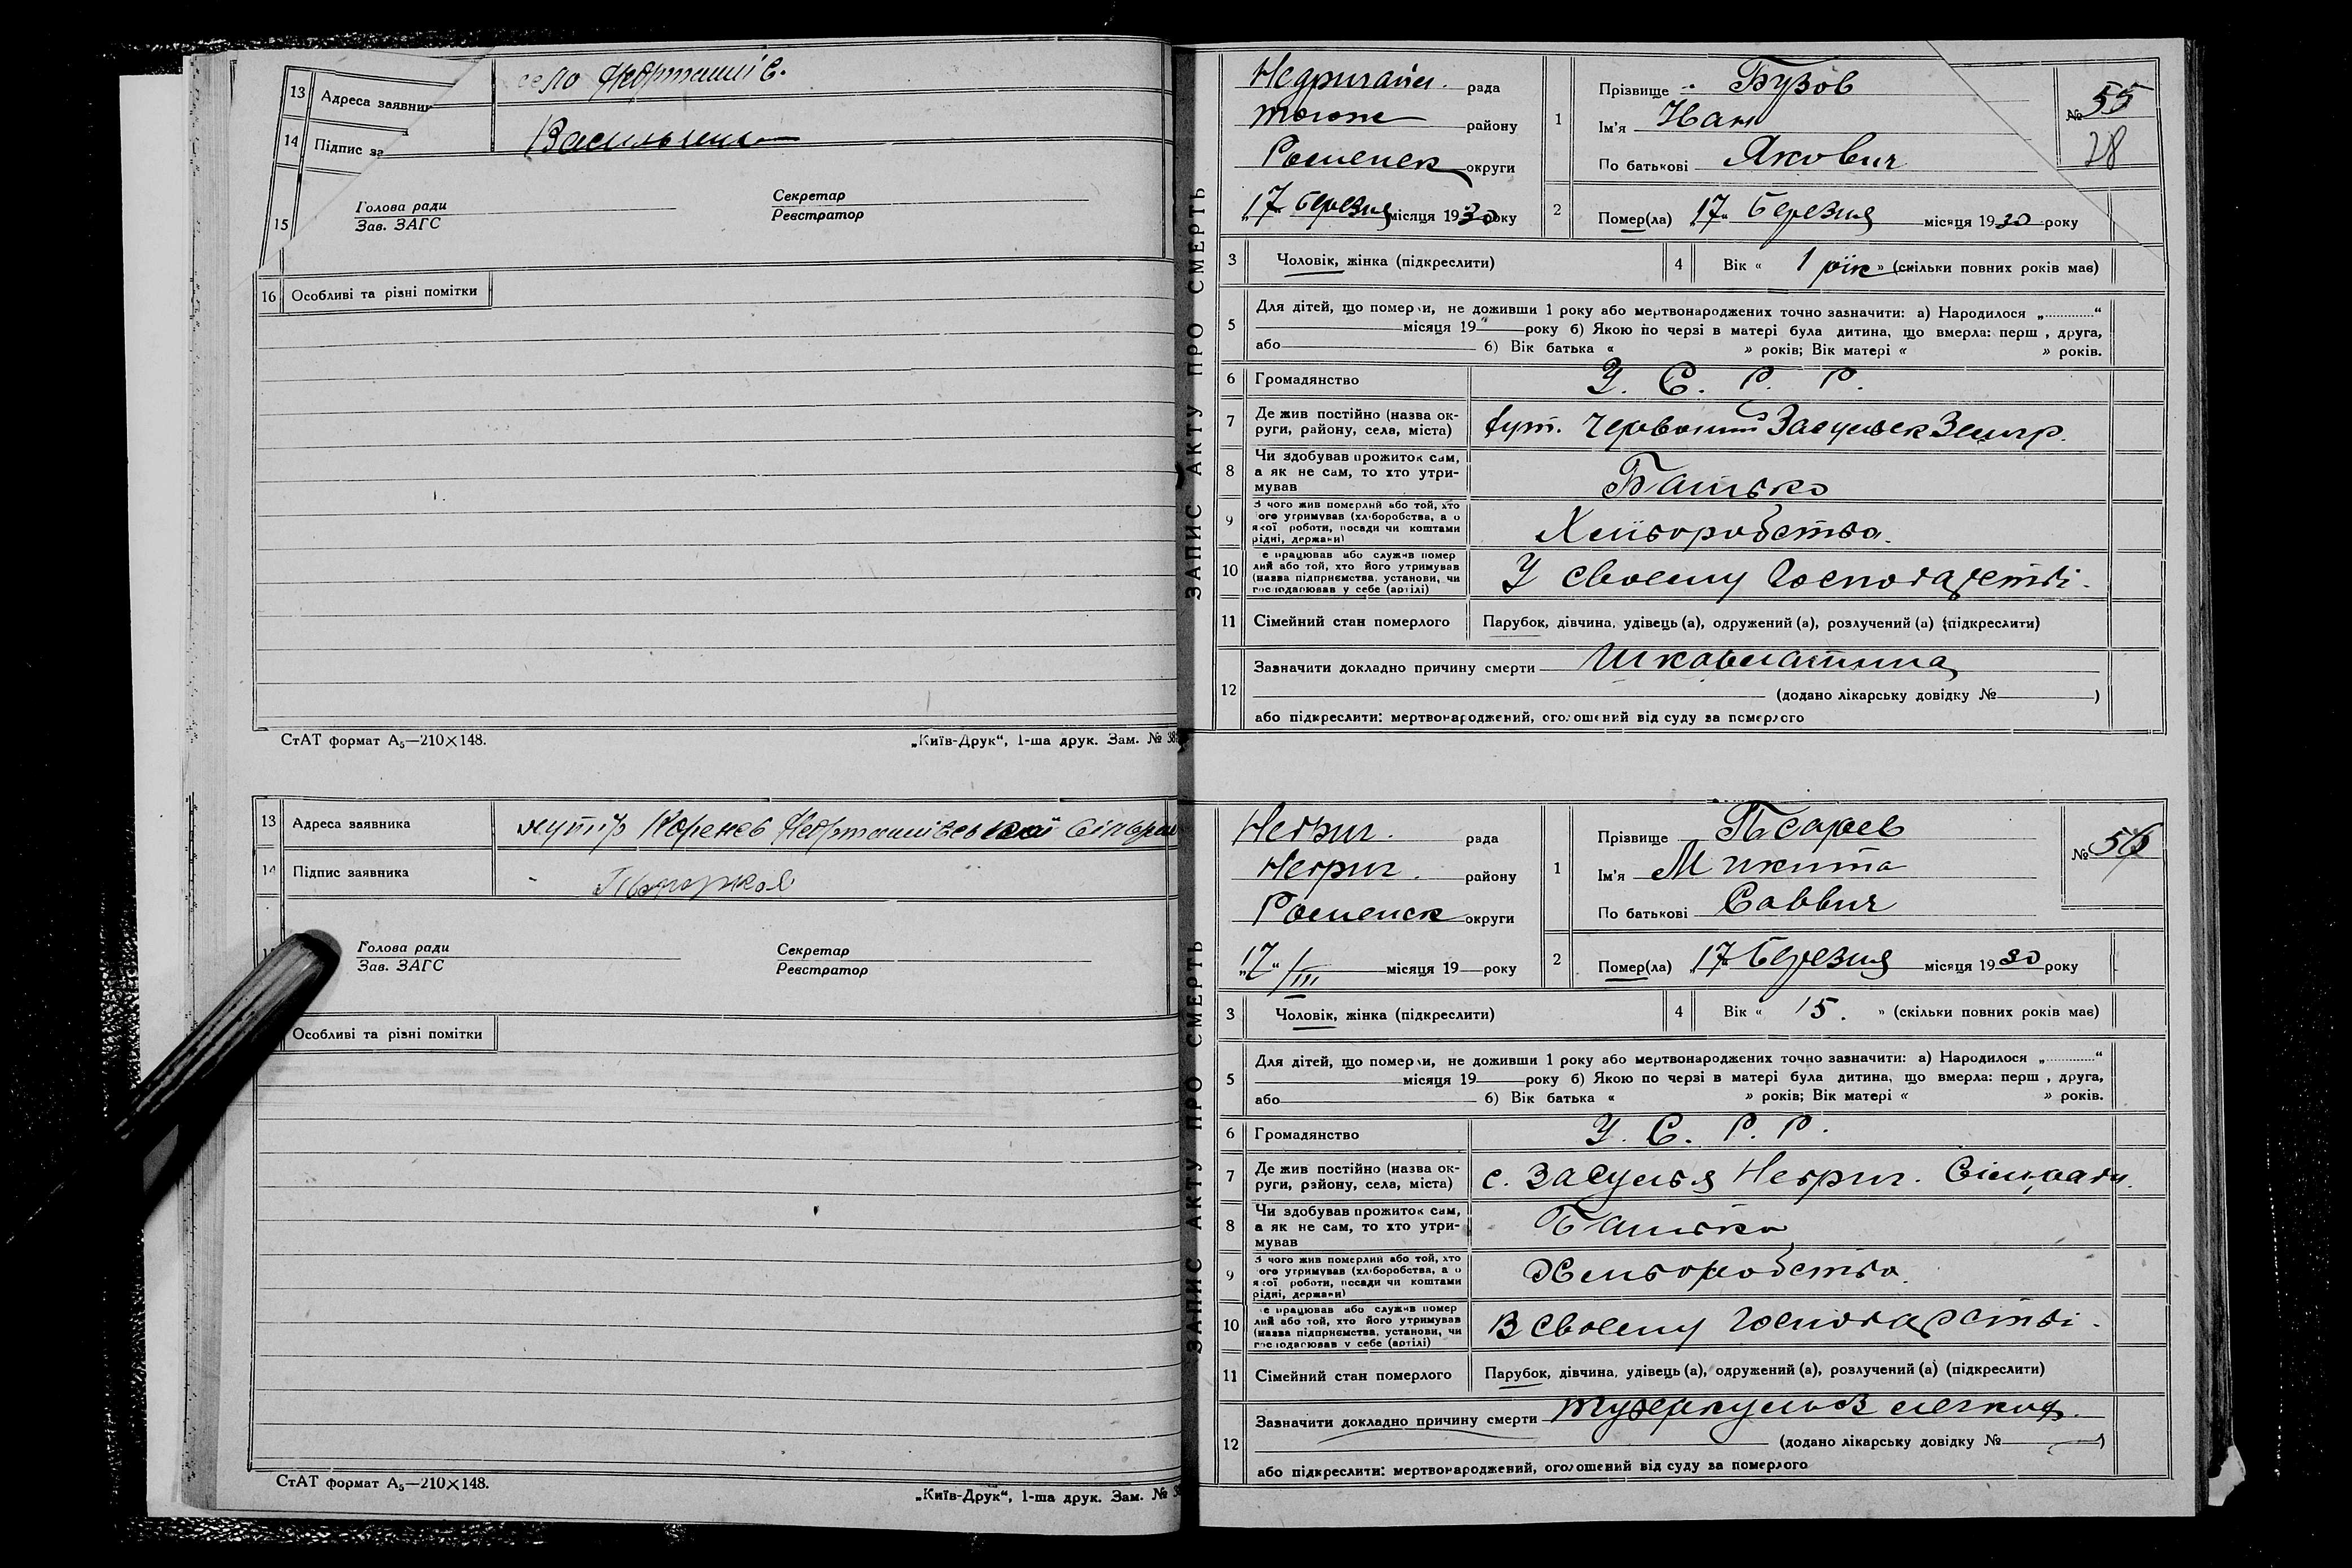 13 Адреса заявник село Фартомів.
14 Підпис за Васильченко
15 Голова ради Секретар
Зав. ЗАГС Реєстратор
16 Особливі та різні помітки
СтАТ формат А₅—210×148. „Київ-Друк“, 1-ша друк. Зам. № 38
13 Адреса заявника хутір Коренев
14 Підпис заявника
Голова ради Секретар
Зав. ЗАГС Реєстратор
Особливі та різні помітки
СтАТ формат А₅—210×148. „Київ-Друк“, 1-ша друк. Зам. № 38
ЗАПИС АКТУ ПРО СМЕРТЬ
Недригайл. рада
тогож району
Роменск округи
„17 березня місяця 1930 року
1 Прізвище Бузов
Ім'я Іван
По батькові Якович
№ 55
28
2 Помер(ла) 17 березня місяця 1930 року
3 Чоловік, жінка (підкреслити) 4 Вік « 1 рік » (скільки повних років має)
5 Для дітей, що померли, не доживши 1 року або мертвонароджених точно зазначити: а) Народилося „ “
місяця 19 року б) Якою по черзі в матері була дитина, що вмерла: перш , друга,
або б) Вік батька « » років; Вік матері « » років.
6 Громадянство У. С. Р. Р.
7 Де жив постійно (назва округи, району, села, міста) хут. Червоний
8 Чи здобував прожиток сам, а як не сам, то хто утримував Батько
9 З чого жив померлий або той, хто ого утримував (хліборобства, а о якої роботи, посади чи коштами рідні, держави) Хліборобства.
10 е працював або служив помер лий або той, хто його утримував (назва підприємства, установи, чи господарював у себе (артілі) У своєму господарстві.
11 Сімейний стан померлого Парубок, дівчина, удівець (а), одружений (а), розлучений (а) (підкреслити)
12 Зазначити докладно причину смерти Шкарлатина
(додано лікарську довідку № )
або підкреслити: мертвонароджений, оголошений від суду за померлого
ЗАПИС АКТУ ПРО СМЕРТЬ
Недриг. рада
Недриг. району
Роменск округи
„17“/III місяця 19 року
1 Прізвище Псарев
Ім'я Микита
По батькові Саввич
№ 56
2 Помер(ла) 17 березня місяця 1930 року
3 Чоловік, жінка (підкреслити) 4 Вік « 15. » (скільки повних років має)
5 Для дітей, що померли, не доживши 1 року або мертвонароджених точно зазначити: а) Народилося „ “
місяця 19 року б) Якою по черзі в матері була дитина, що вмерла: перш , друга,
або б) Вік батька « » років; Вік матері « » років.
6 Громадянство У. С. Р. Р.
7 Де жив постійно (назва округи, району, села, міста) с. Засулья Недриг. Сільради.
8 Чи здобував прожиток сам, а як не сам, то хто утримував Батько
9 З чого жив померлий або той, хто ого утримував (хліборобства, а о якої роботи, посади чи коштами рідні, держави) Хльборобство.
10 е працював або служив помер лий або той, хто його утримував (назва підприємства, установи, чи господарював у себе (артілі) В своєму господарстві.
11 Сімейний стан померлого Парубок, дівчина, удівець (а), одружений (а), розлучений (а) (підкреслити)
12 Зазначити докладно причину смерти Туберкульоз легких.
(додано лікарську довідку № )
або підкреслити: мертвонароджений, оголошений від суду за померлого